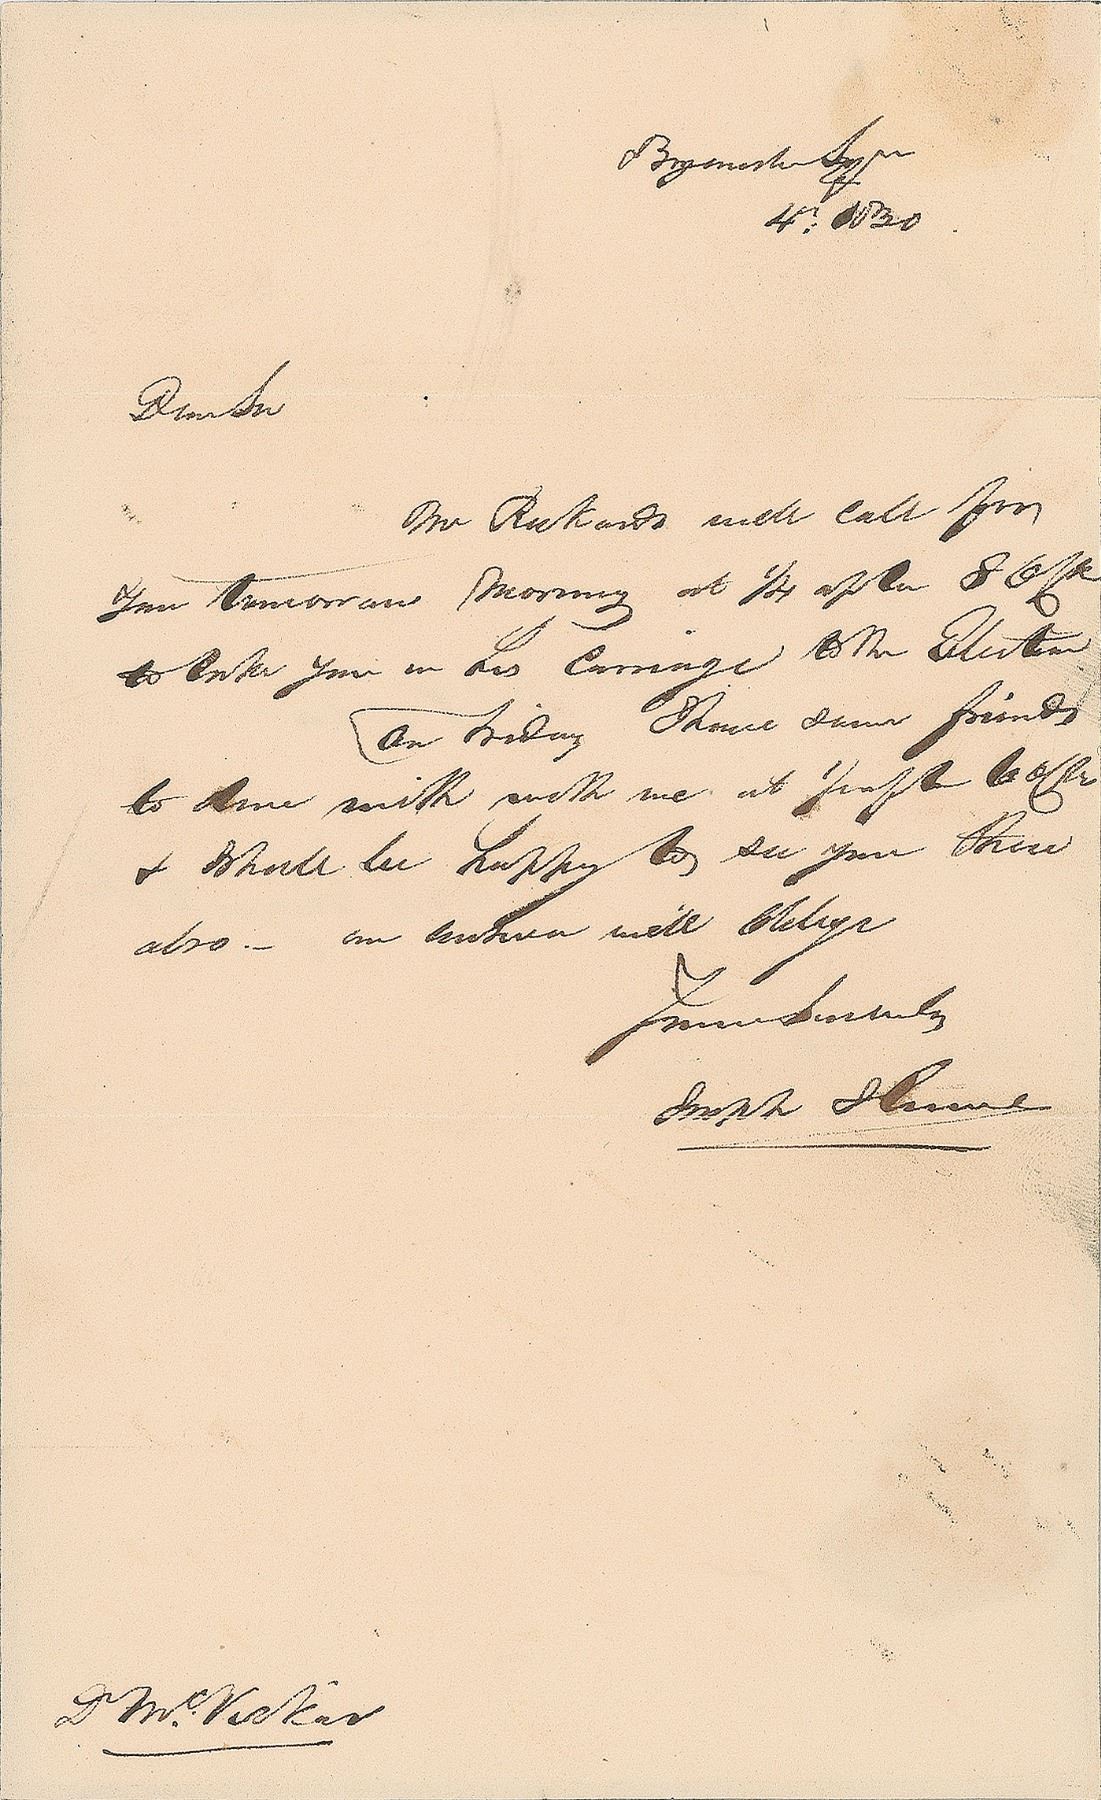 Bryanston Sqr
4th 1830
Dear Sir
Mr Rickards will call for
you tomorrow Morning at 1/4 after 8 OClk
to take you in his Carriage to the Election
On Friday I have some friends
to dine with with me at after 6 oClk
& Shall be happy to see you there
also. – an answer will Oblige
Yours Sincerely
Joseph Hume
Dr McVickar